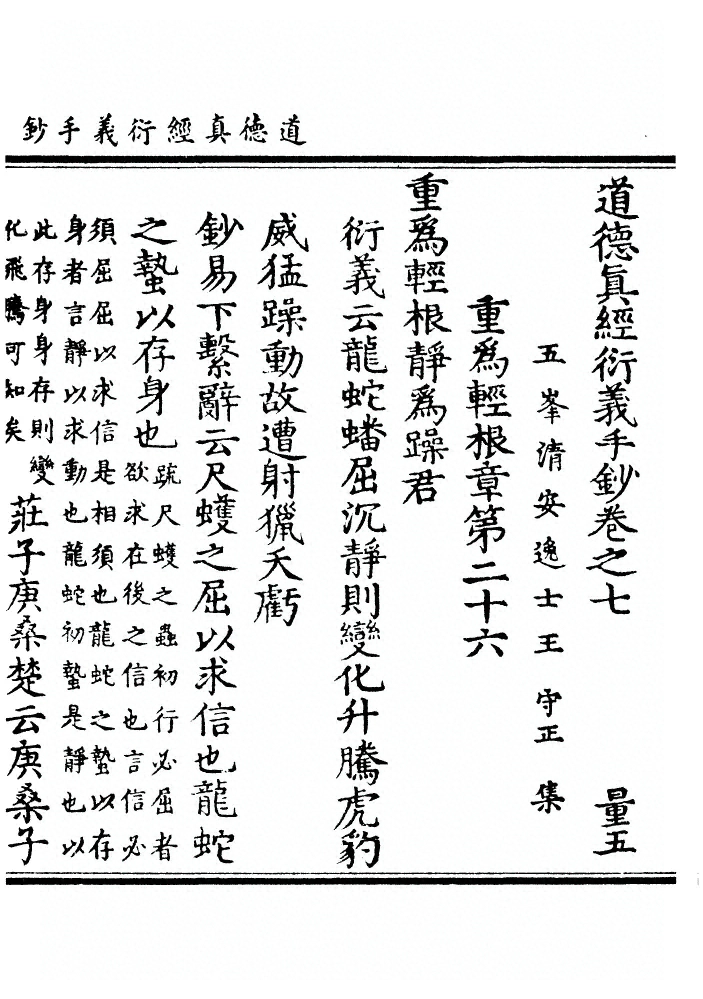 道德真經衍義手鈔
道德真經衍義手鈔卷之七 量五
五峯清安逸士王守正集
重爲輕根章第二十六
重爲輕根靜爲躁君
衍義云龍蛇蟠屈沉靜則變化升騰虎豹
威猛躁動故遭射獵夭虧
鈔易下繫辭云尺蠖之屈以求信也龍蛇
之蟄以存身也
疏尺蠖之蟲初行必屈者
欲求在後之信也言信必
須屈屈以求信是相須也龍蛇之蟄以存
身者言靜以求動也龍蛇初蟄是靜也以
此存身身存則變
化飛騰可知矣
莊子庚桑楚云庚桑子